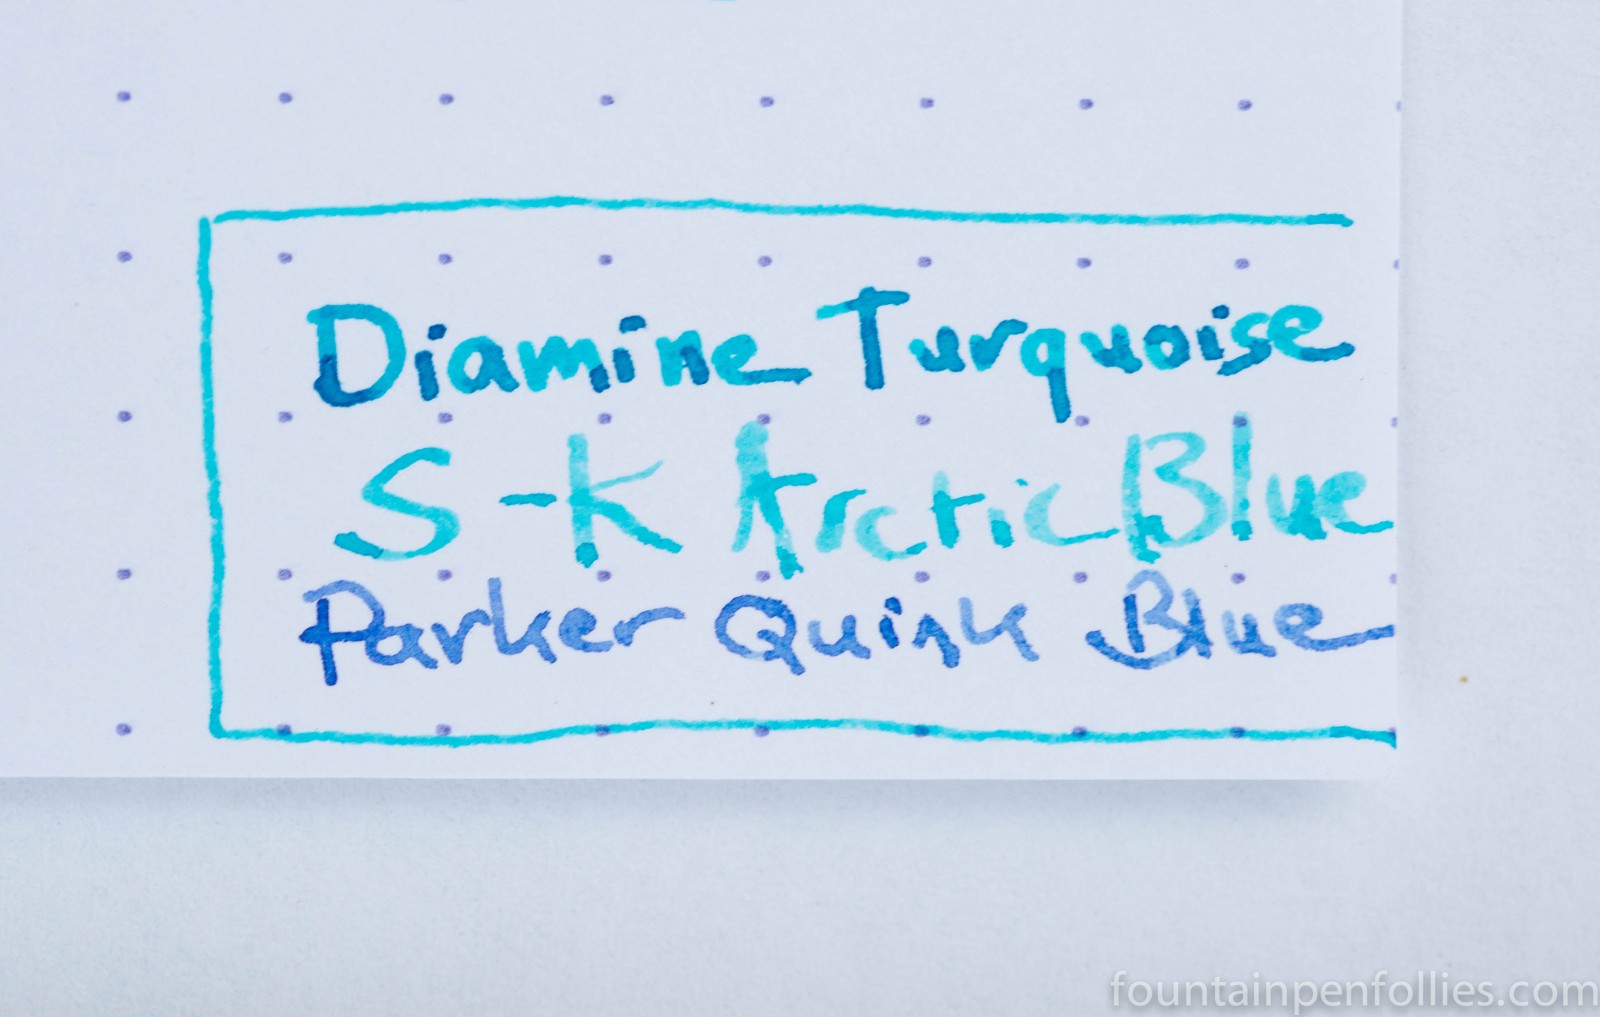 Diamine Turquoise
S-K Arctic Blue
Parker Quink Blue
fountainpenfollies.com